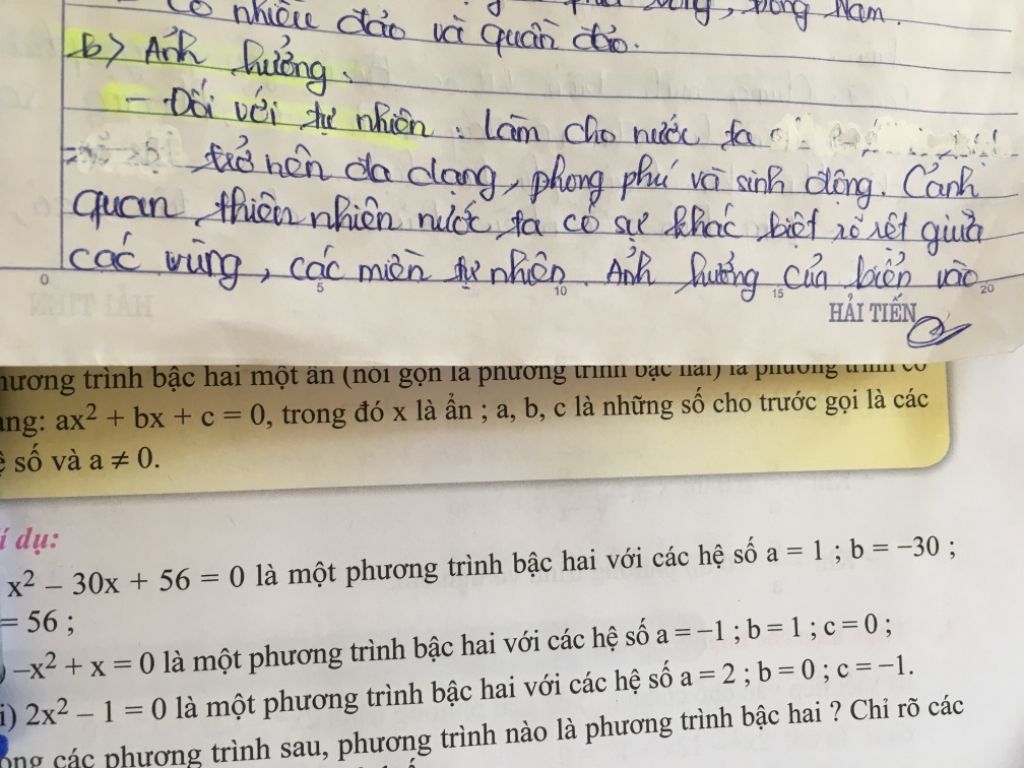 có nhiều đảo và quần đảo.
b) Ảnh hưởng.
- Đối với tự nhiên: Làm cho nước ta
trở nên đa dạng, phong phú và sinh động. Cảnh
quan thiên nhiên nước ta có sự khác biệt rõ rệt giữa
các vùng, các miền tự nhiên. Ảnh hưởng của biển vào
0 5 10 15 20
HẢI TIẾN
hương trình bậc hai một ẩn (nói gọn là phương trình bậc hai) là phương trình có
ạng: ax² + bx + c = 0, trong đó x là ẩn ; a, b, c là những số cho trước gọi là các
ệ số và a ≠ 0.
í dụ:
x² – 30x + 56 = 0 là một phương trình bậc hai với các hệ số a = 1 ; b = –30 ;
= 56 ;
) –x² + x = 0 là một phương trình bậc hai với các hệ số a = –1 ; b = 1 ; c = 0 ;
i) 2x² – 1 = 0 là một phương trình bậc hai với các hệ số a = 2 ; b = 0 ; c = –1.
ong các phương trình sau, phương trình nào là phương trình bậc hai ? Chỉ rõ các